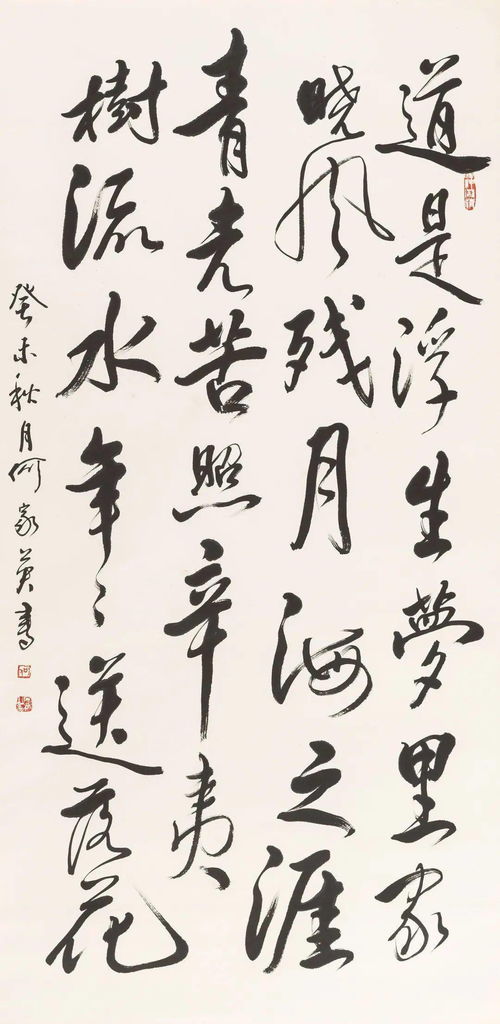 道是浮生夢里家
晓风残月海之涯
青光苦照辛夷
樹流水年〻送落花
癸未秋月何家英書